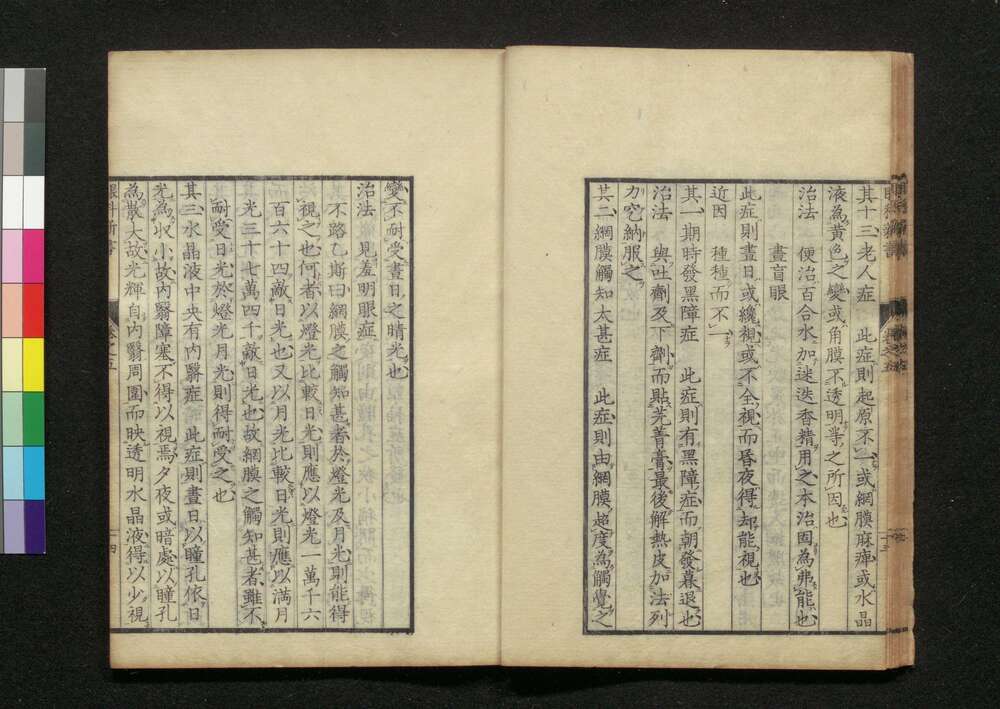 其十三老人症　此症則起原不一或網膜麻痺或水晶
液為黄色之變或角膜不透明等之所因也
治法　便治百合水加迷迭香精用之本治固為弗能也
晝盲眼
此症則晝日或纔視或不全視而昏夜得却能視也
近因　種種而不一
其一期時發黒障症　此症則有黒障症而朝發暮退也
治法　與吐劑及下劑而貼芫菁膏最後解熱皮加法列
力究納服之
其二網膜觸知太甚症　此症則由網膜超度為觸覺之
變不耐受晝日之晴光也
治法　見羞明眼症
不路乙斯曰網膜之觸知甚者於燈光及月光則能得
視之也何者以燈光比較日光則應以燈光一萬千六
百六十四敵日光也又以月光比較日光則應以滿月
光三十七萬四千敵日光也故網膜之觸知甚者雖不
耐受日光於燈光月光則得耐受之也
其三水晶液中央有内翳症　此症則晝日以瞳孔依日
光為收小故内翳障塞不得以視焉夕夜或暗處以瞳孔
為散大故光輝自内翳周圍而映透明水晶液得以少視
眼科新書
卷之五
十四